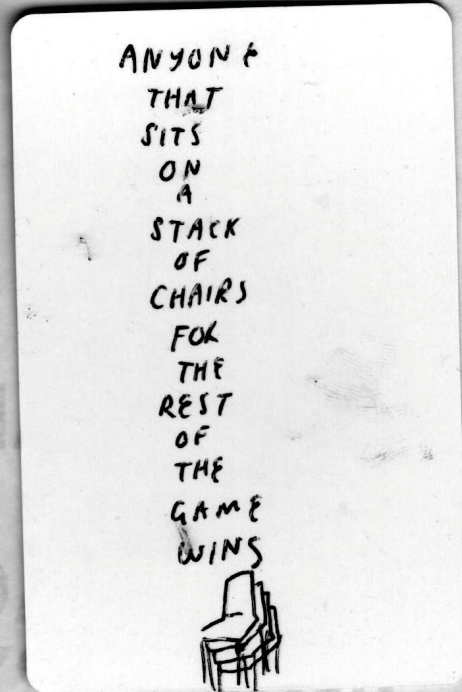 ANYONE
THAT
SITS
ON
A
STACK
OF
CHAIRS
FOR
THE
REST
OF
THE
GAME
WINS